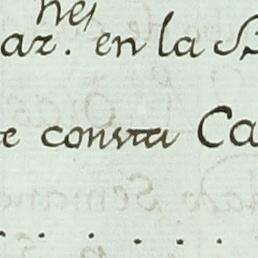 nes
ar. en la
e consta Ca